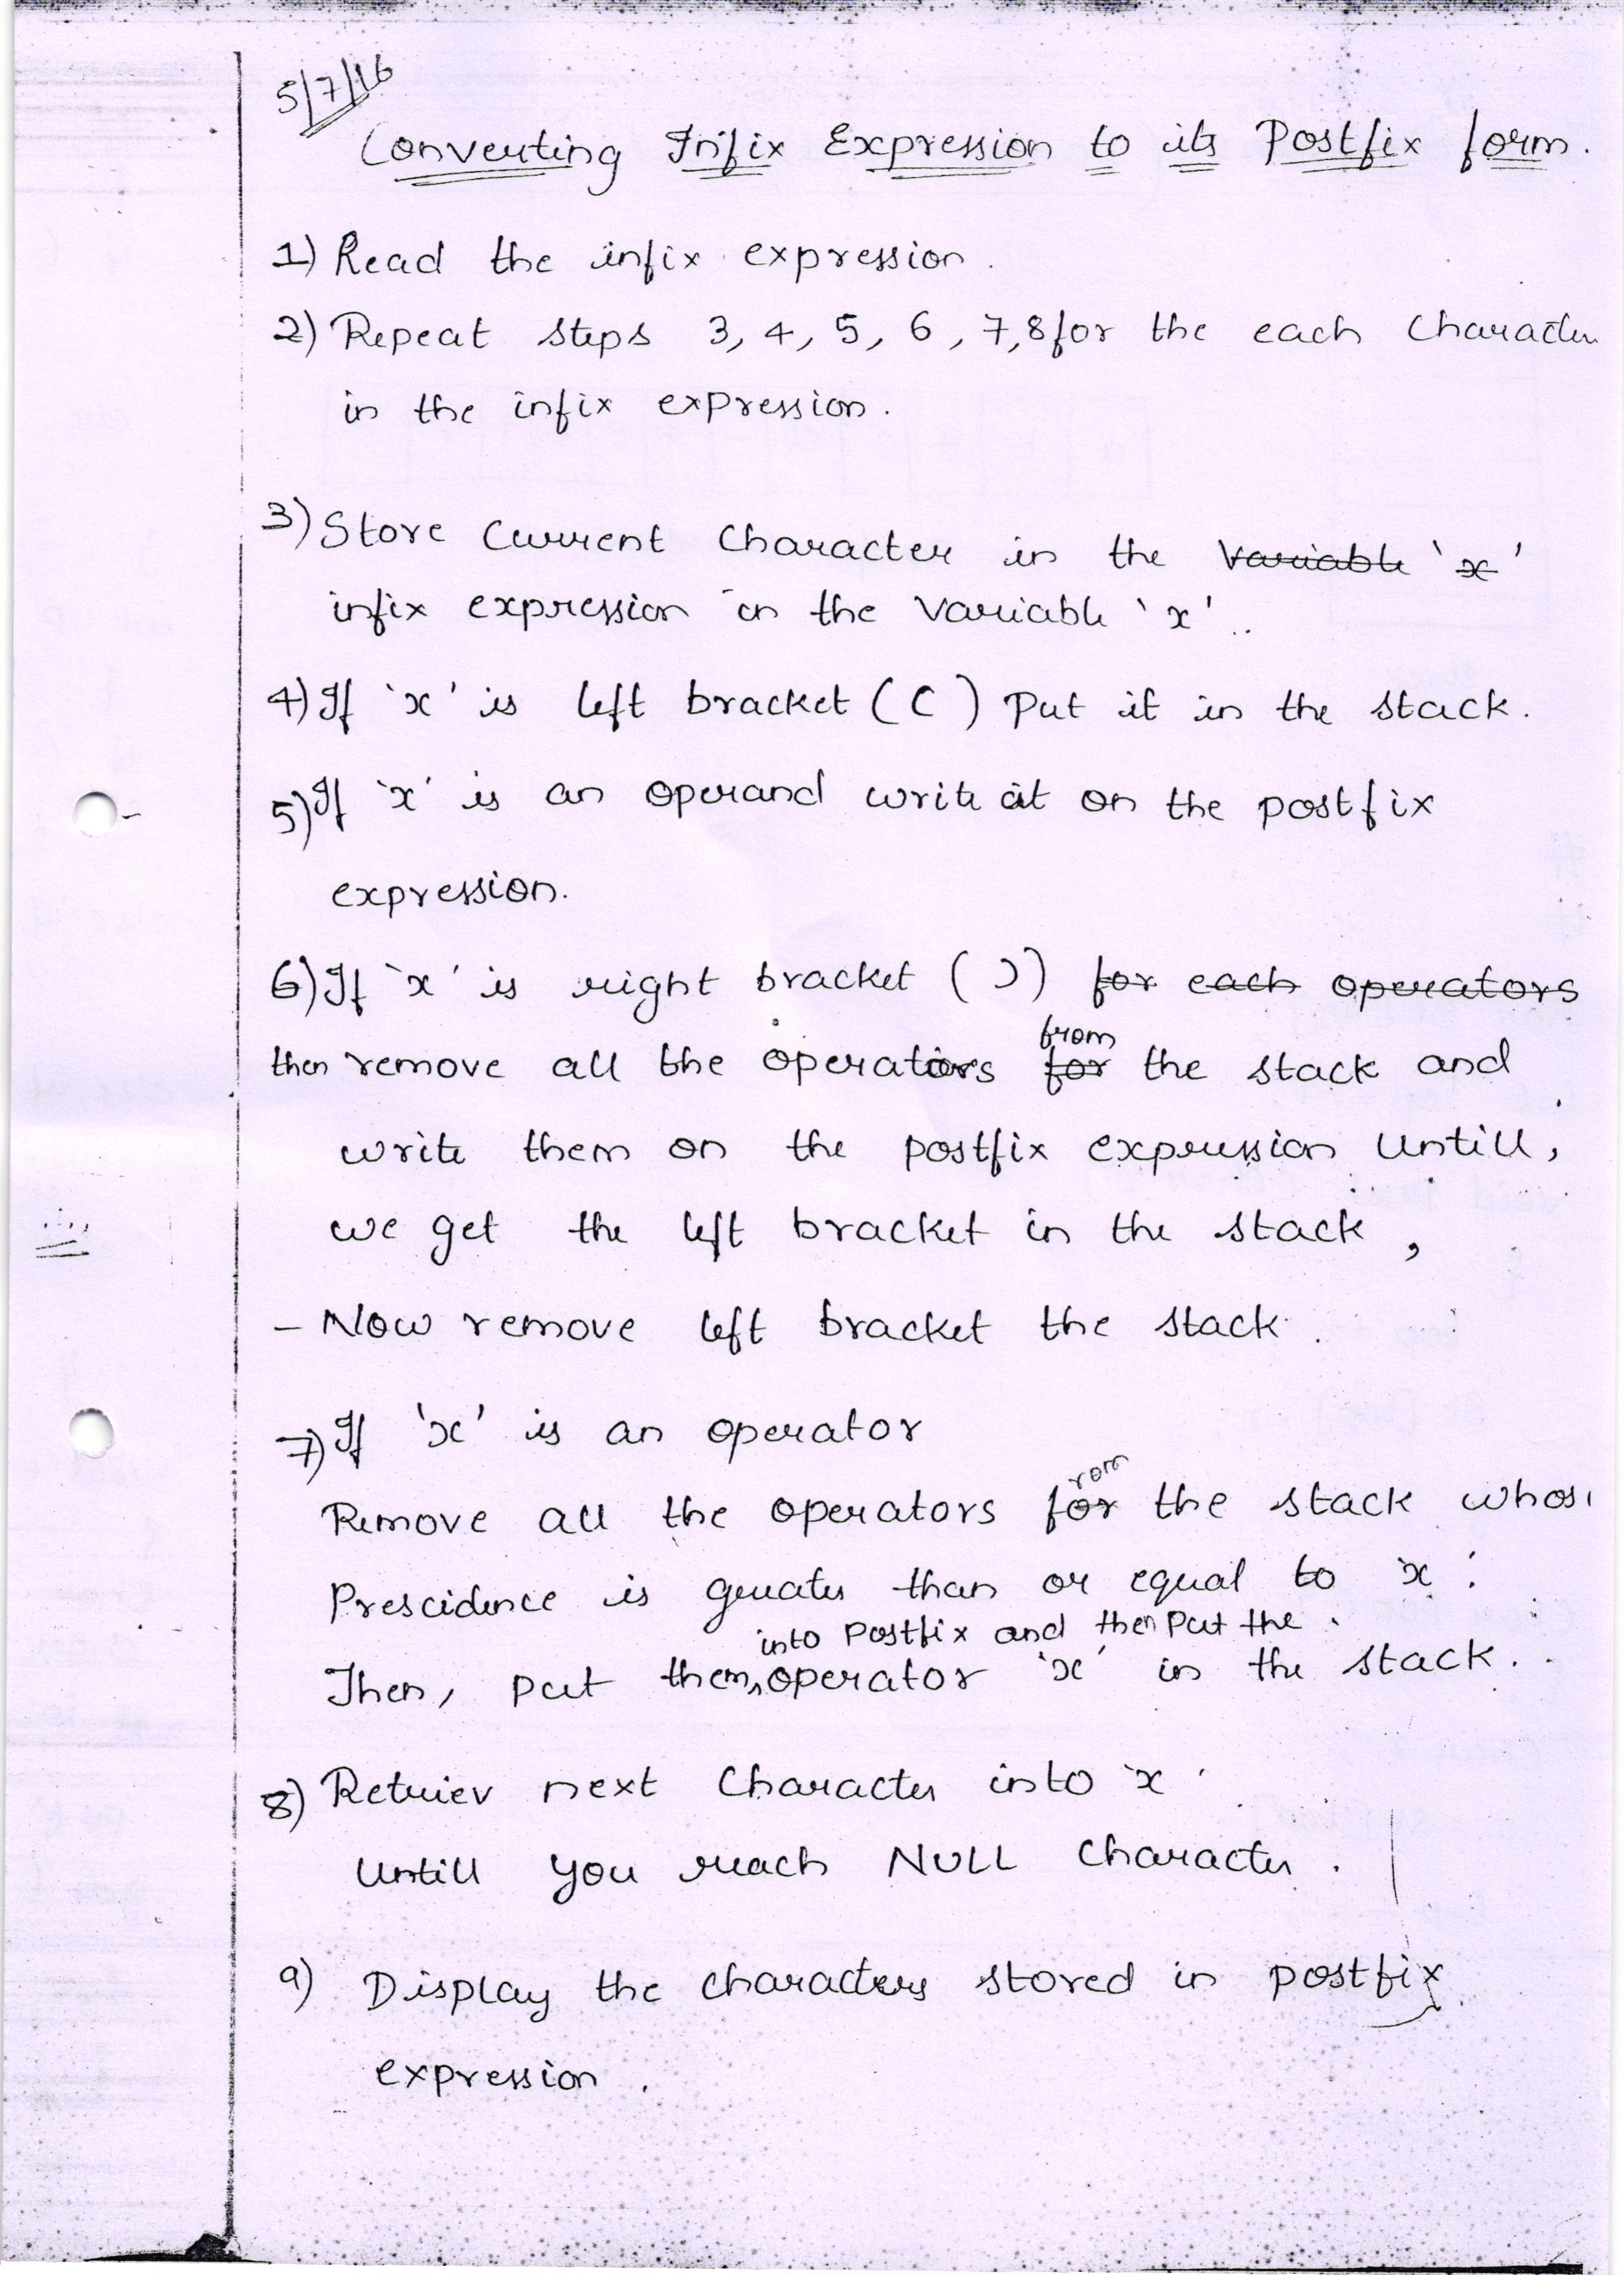 5/7/16
Converting Infix Expression to its Postfix form.
1) Read the infix expression.
2) Repeat steps 3, 4, 5, 6, 7, 8 for the each Character
in the infix expression.
3) Store Current Character in the Variable 'x'
infix expression in the Variable 'x'.
4) If 'x' is left bracket ( ( ) Put it in the stack.
5) If 'x' is an operand write it on the postfix
expression.
6) If 'x' is right bracket ( ) ) for each operators
from
then remove all the operators for the stack and
write them on the postfix expression Untill,
we get the left bracket in the stack,
- Now remove left bracket the stack.
7) If 'x' is an operator
rom
Remove all the operators for the stack whose
Prescidence is greater than or equal to 'x'.
into Postfix and then Put the
Then, put them, operator 'x' in the stack.
8) Retriev next Character into 'x'
Untill you reach NULL Character.
9) Display the characters stored in postfix
expression.